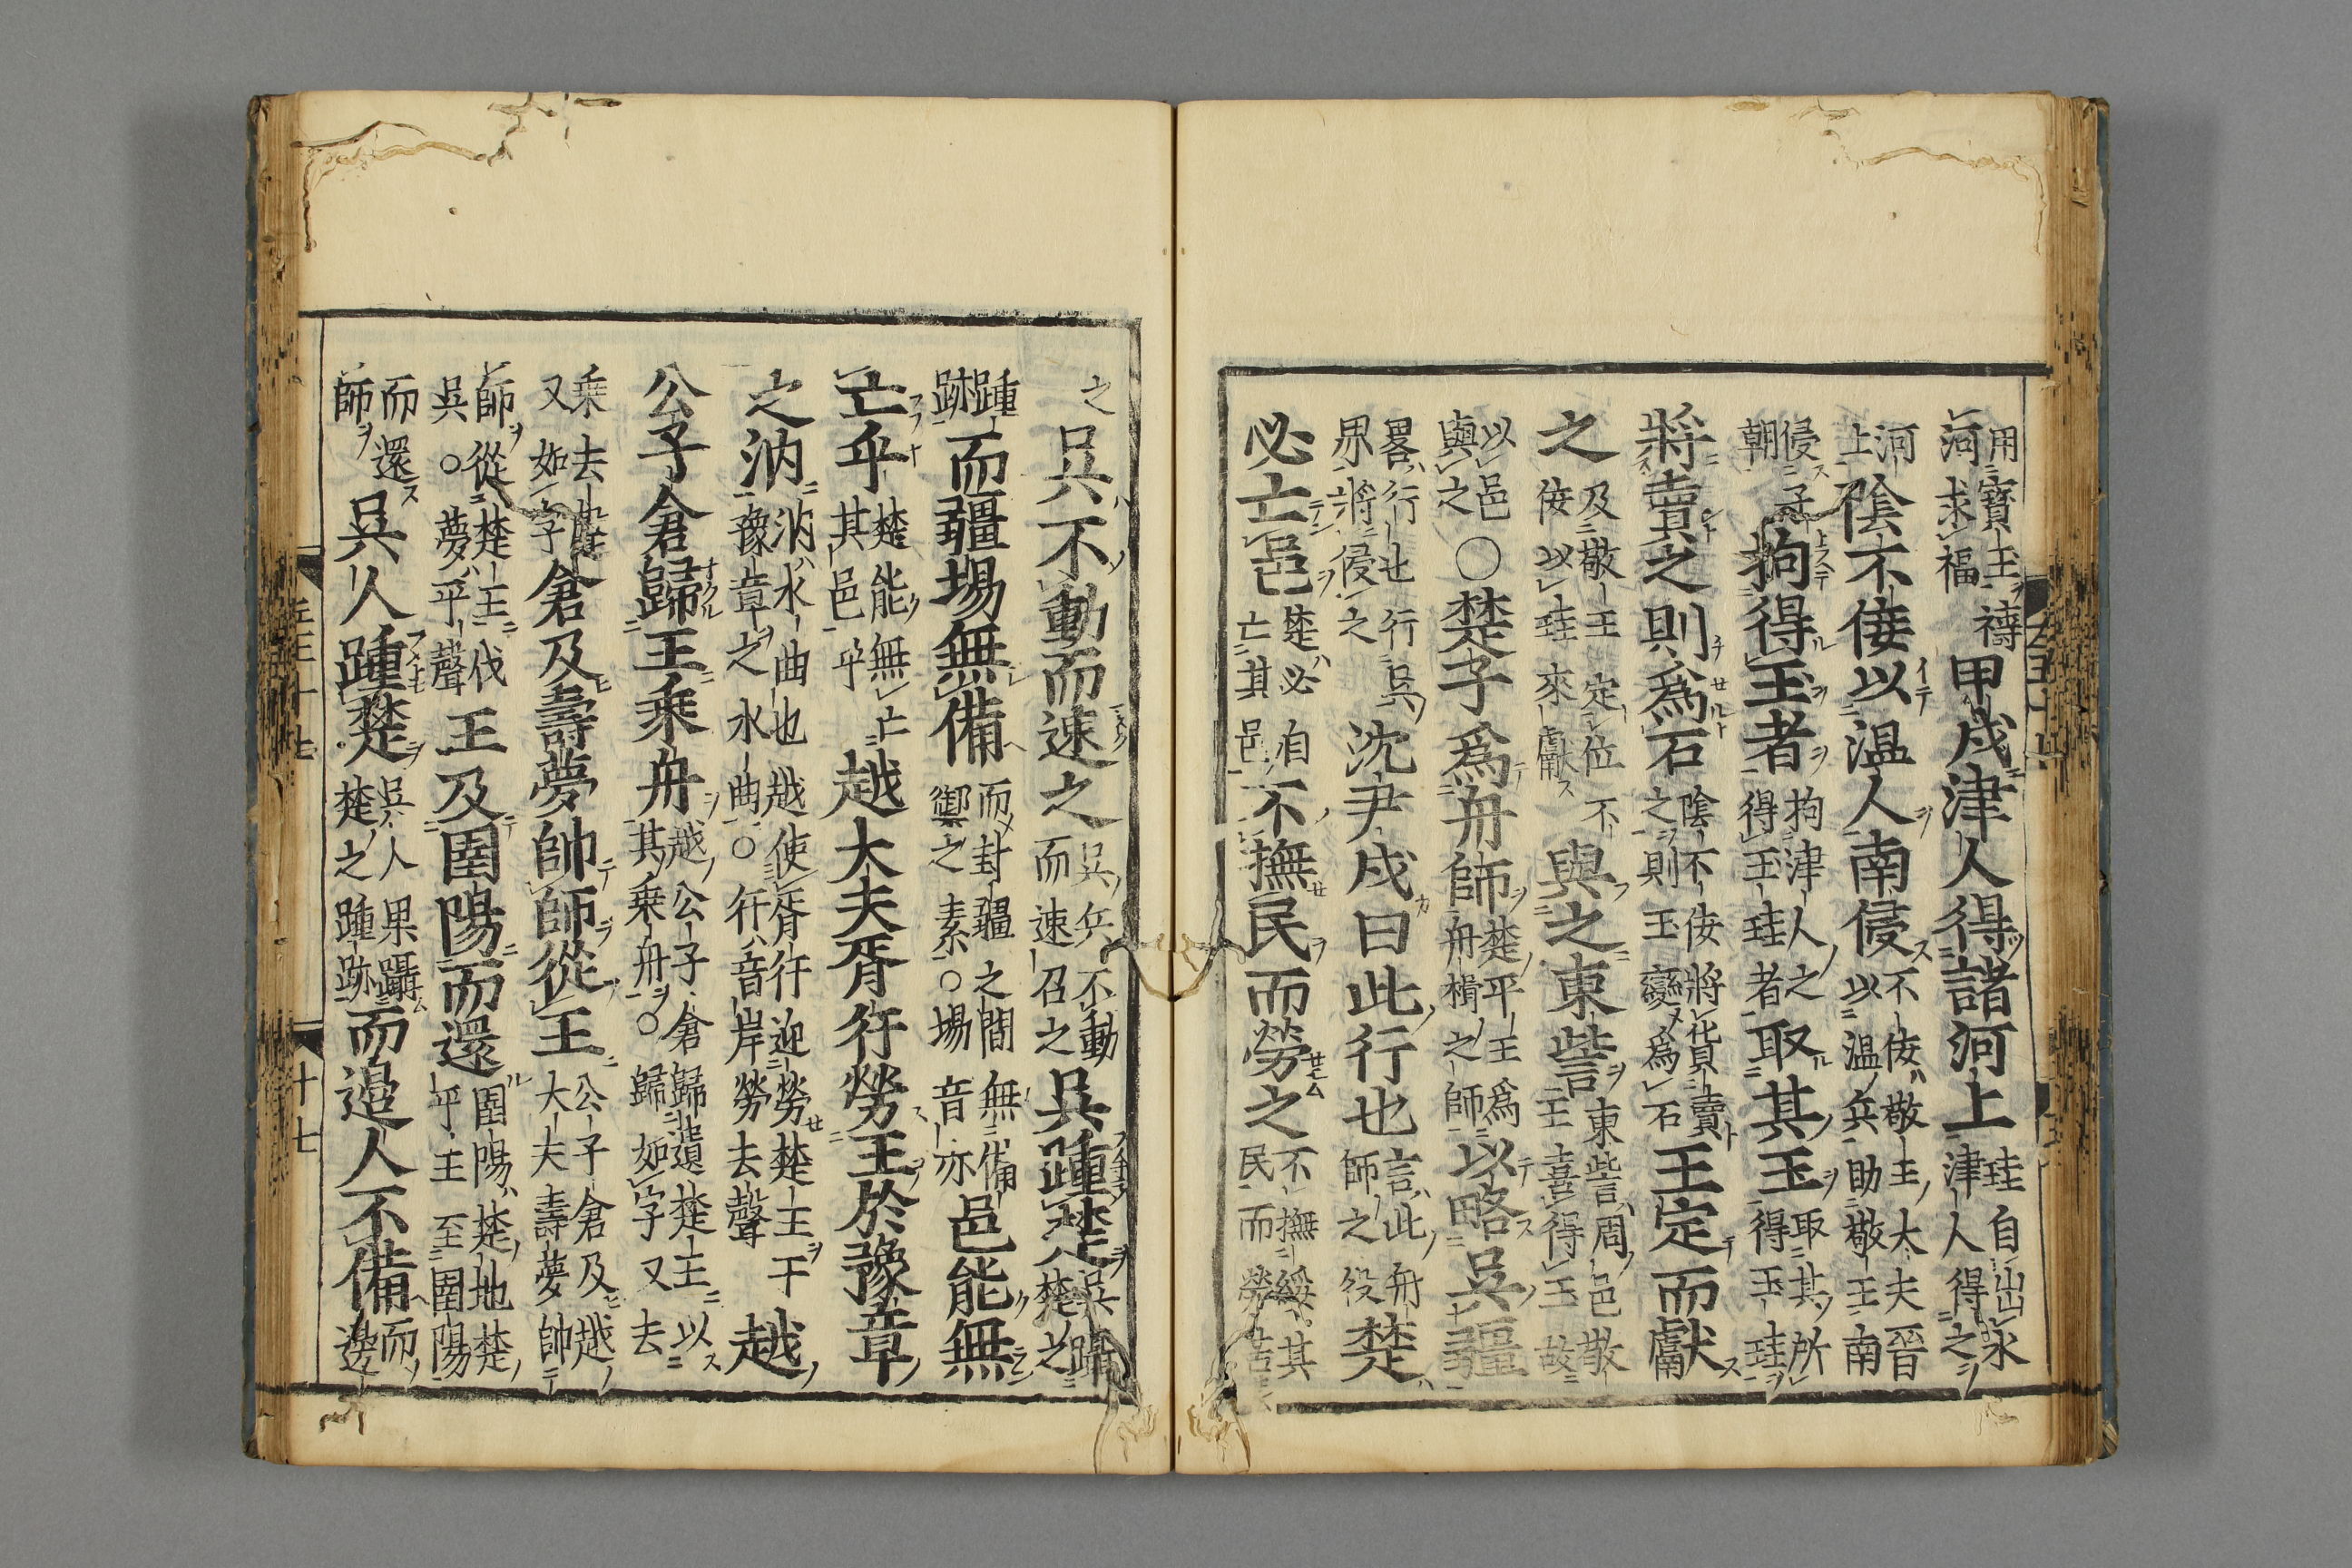 用寶玉禱河求福甲戌津人得諸河上珪自出水津人得之
河上陰不佞以温人南侵不佞敬王大夫晉以温兵助敬王南
侵子朝拘得玉者拘津人之得玉珪者取其玉取其所得玉珪
將賣之則爲石陰不佞將貨賣之則玉變爲石王定而獻
之及敬王定位不佞以珪來獻與之東訾東訾周邑敬王喜得玉故
以邑與之○楚子爲舟師楚平王爲舟楫之師以略吳疆
畧行也行吳界將侵之沈尹戌曰此行也言此舟師之役楚
必亡邑楚必自亡其邑不撫民而勞之不撫綏其民而勞苦
之吳不動而速之吳兵不動而速召之吳踵楚吳躡楚之
踵跡而疆場無備而封疆之間無備禦之素○場音亦邑能無
亡乎楚能無亡其邑乎越大夫胥犴勞王於豫章
之汭汭水曲也越使胥犴迎勞楚王于豫章之水曲○犴音岸勞去聲越
公子倉歸王乘舟越公子倉歸遺楚王以其乘舟○歸如字又去
乘去聲又如字倉及壽夢帥師從王公子倉及越大夫壽夢帥
師從楚王伐吳○夢平聲王及圉陽而還圉陽楚地楚平王至圉陽
而還師吳人踵楚吳人果躡楚之踵跡而邊人不備而邊
十七